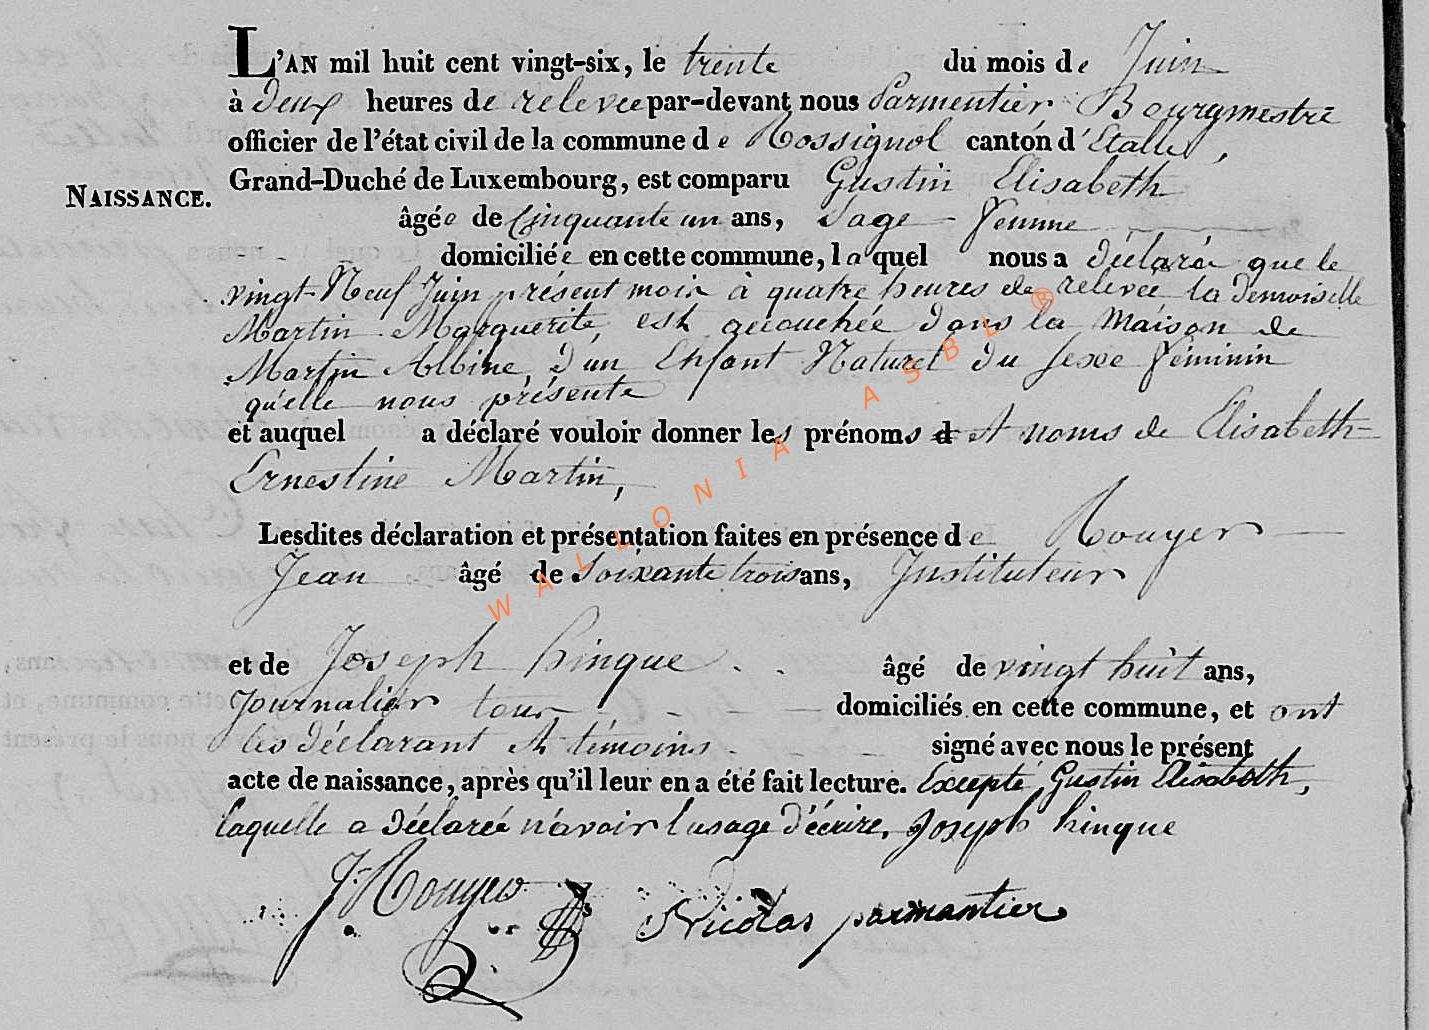 L'AN mil huit cent vingt-six, le trente du mois de Juin
à Deux heures de relevée par-devant nous Parmentier Bourgmestre
officier de l'état civil de la commune de Rossignol canton d'Etalle,
Grand-Duché de Luxembourg, est comparu Gustin Elisabeth
NAISSANCE.
âgée de Cinquante un ans, Sage-femme
domiciliée en cette commune, laquel nous a déclaré que le
vingt-Neuf Juin présent mois à quatre heures de relevée la Demoiselle
Martin Marguerite est accouchée dans la maison de
Martin Albine, d'un Enfant Naturel du sexe féminin
qu'elle nous présente
et auquel a déclaré vouloir donner les prénoms et noms de Elisabeth
Ernestine Martin,
Lesdites déclaration et présentation faites en présence de Rouyer
Jean âgé de Soixante trois ans, Instituteur
et de Joseph hinque âgé de vingt huit ans,
Journalier tous domiciliés en cette commune, et ont
les déclarant et témoins signé avec nous le présent
acte de naissance, après qu'il leur en a été fait lecture. Excepté Gustin Elisabeth,
laquelle a déclarée n'avoir l'usage d'écrire. Joseph hinque
J. Rouyer
Nicolas parmantier
WALLONIA ASBL ®